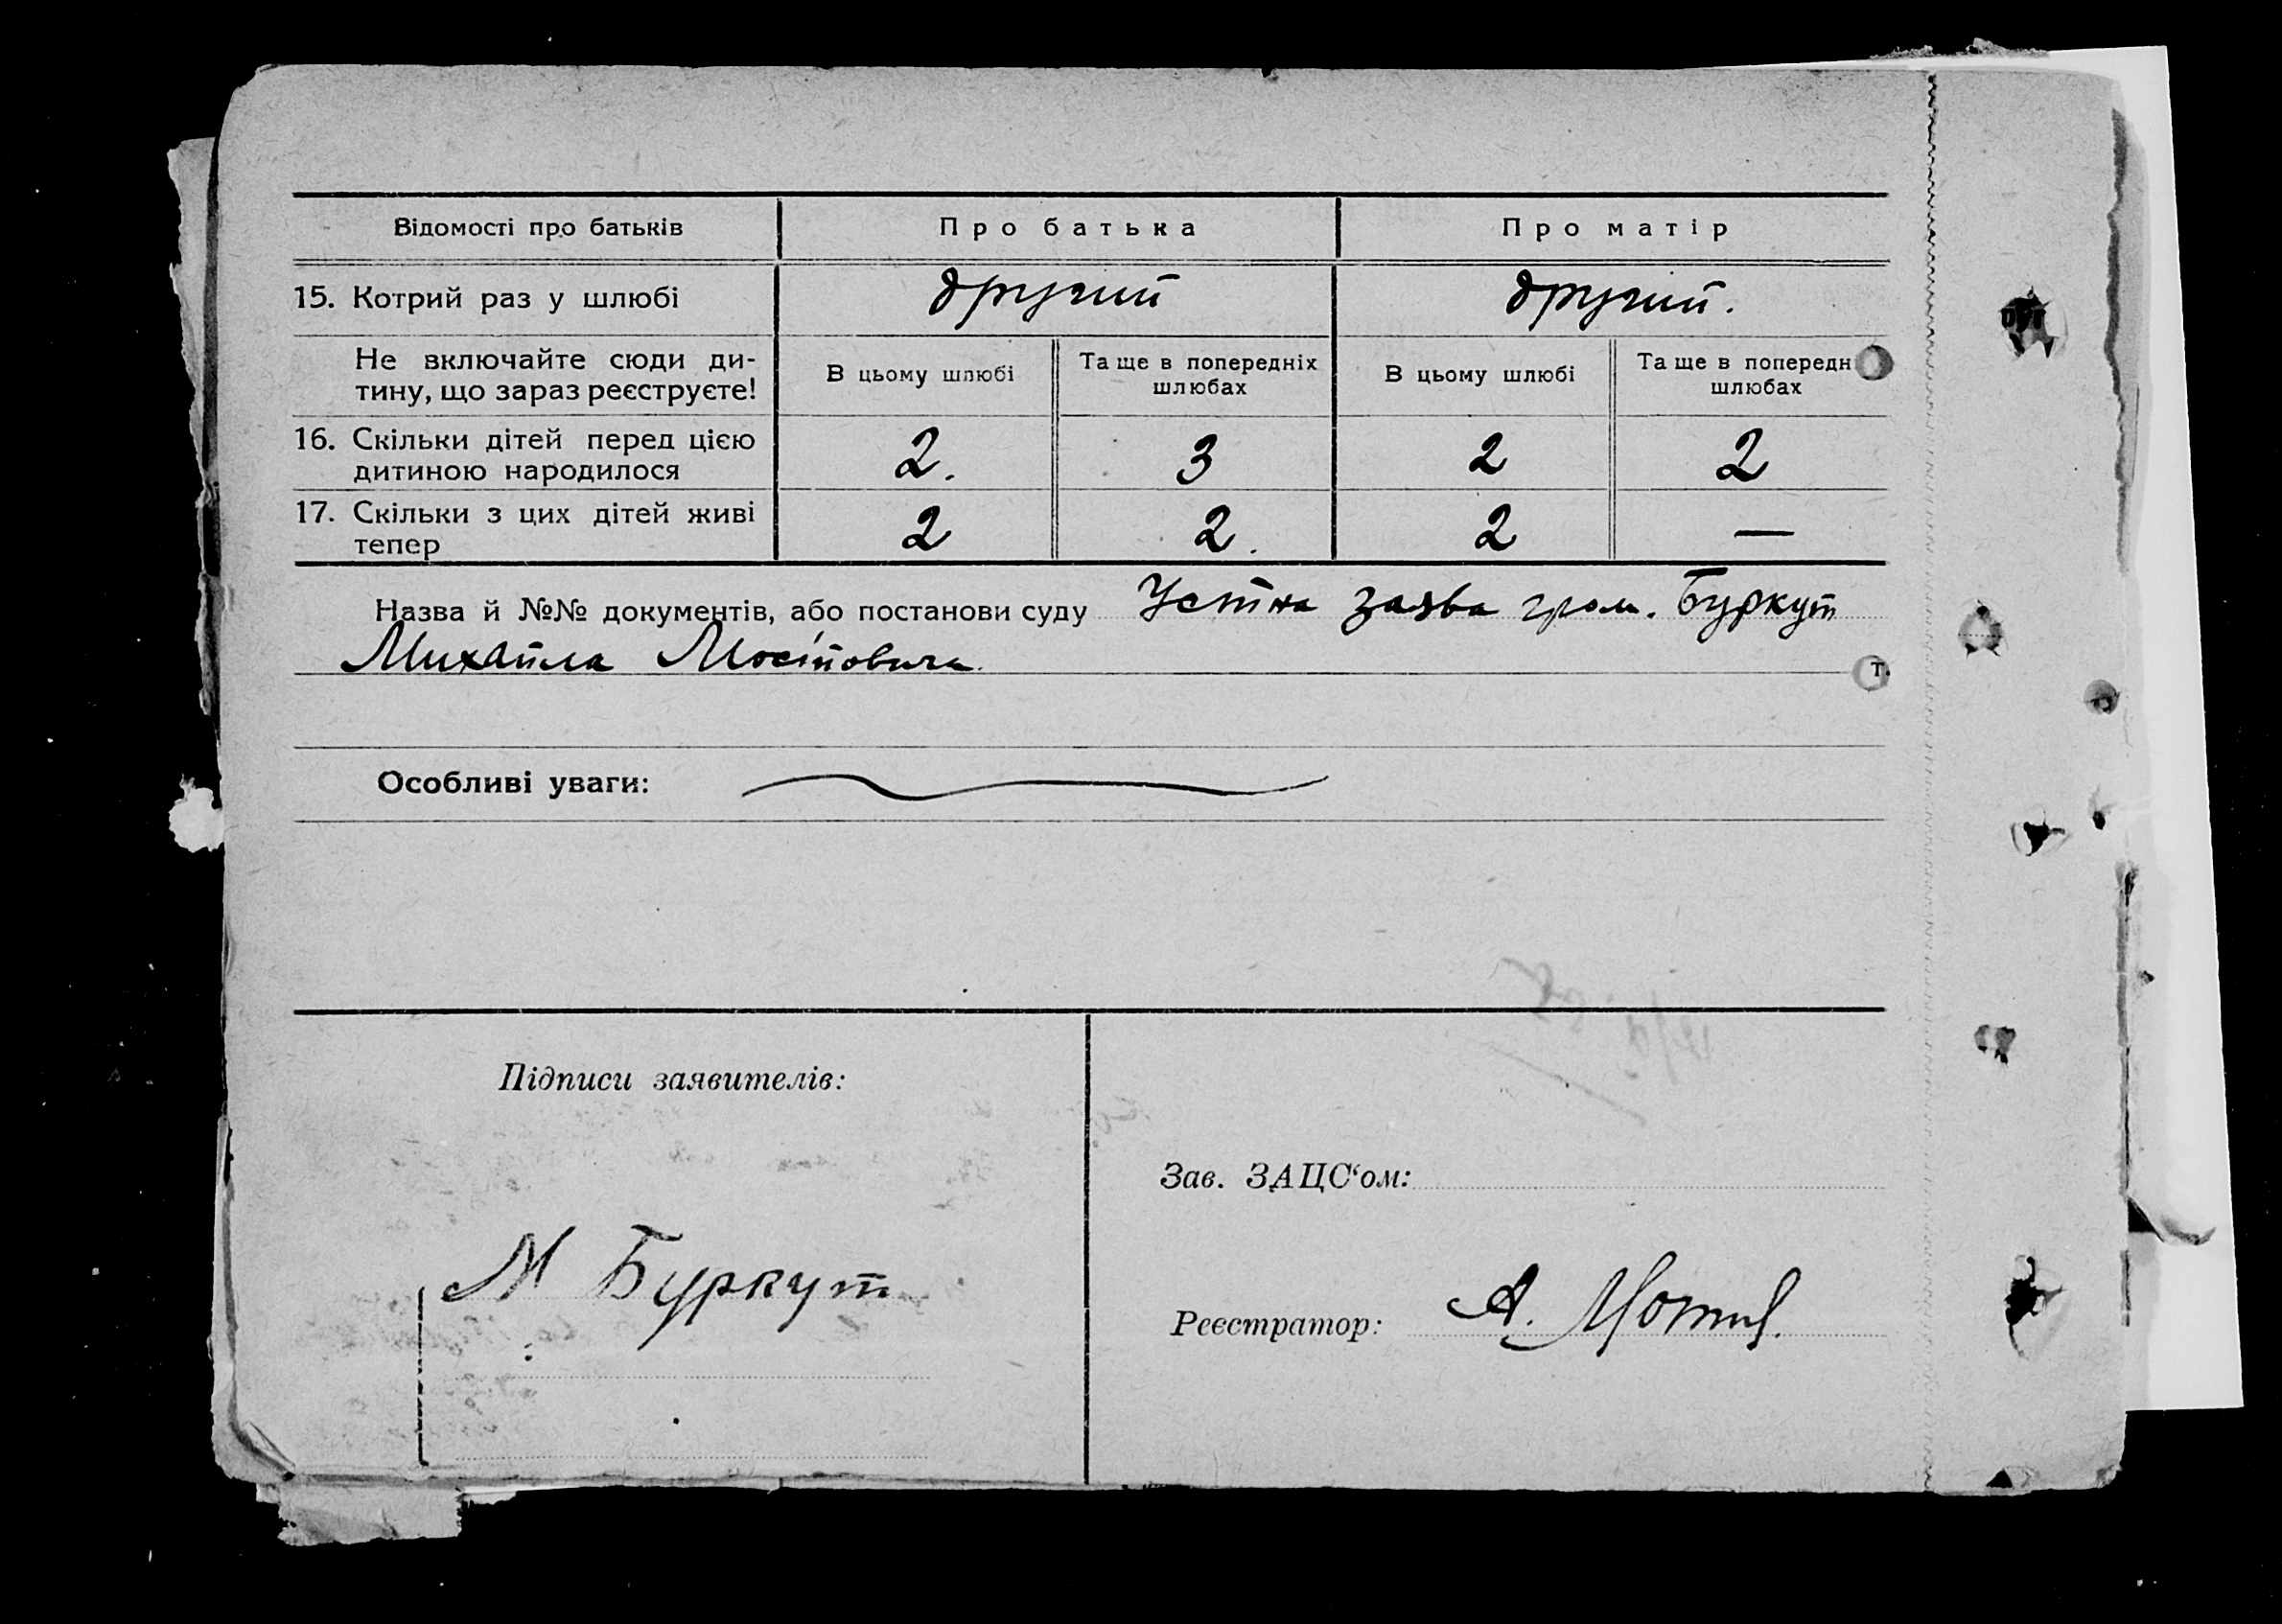 Відомості про батьків Про батька Про матір
15. Котрий раз у шлюбі другий другий.
Не включайте сюди ди-
тину, що зараз реєструєте!
В цьому шлюбі Та ще в попередніх
шлюбах
В цьому шлюбі Та ще в попередн
шлюбах
16. Скільки дітей перед цією
дитиною народилося
2. 3 2 2
17. Скільки з цих дітей живі
тепер
2 2. 2 —
Назва й №№ документів, або постанови суду Устна заява гром. Буркут
Михайла Мосіповича.
т.
Особливі уваги:
Підписи заявителів:
Зав. ЗАЦС‘ом:
М Буркут
Реєстратор: А.